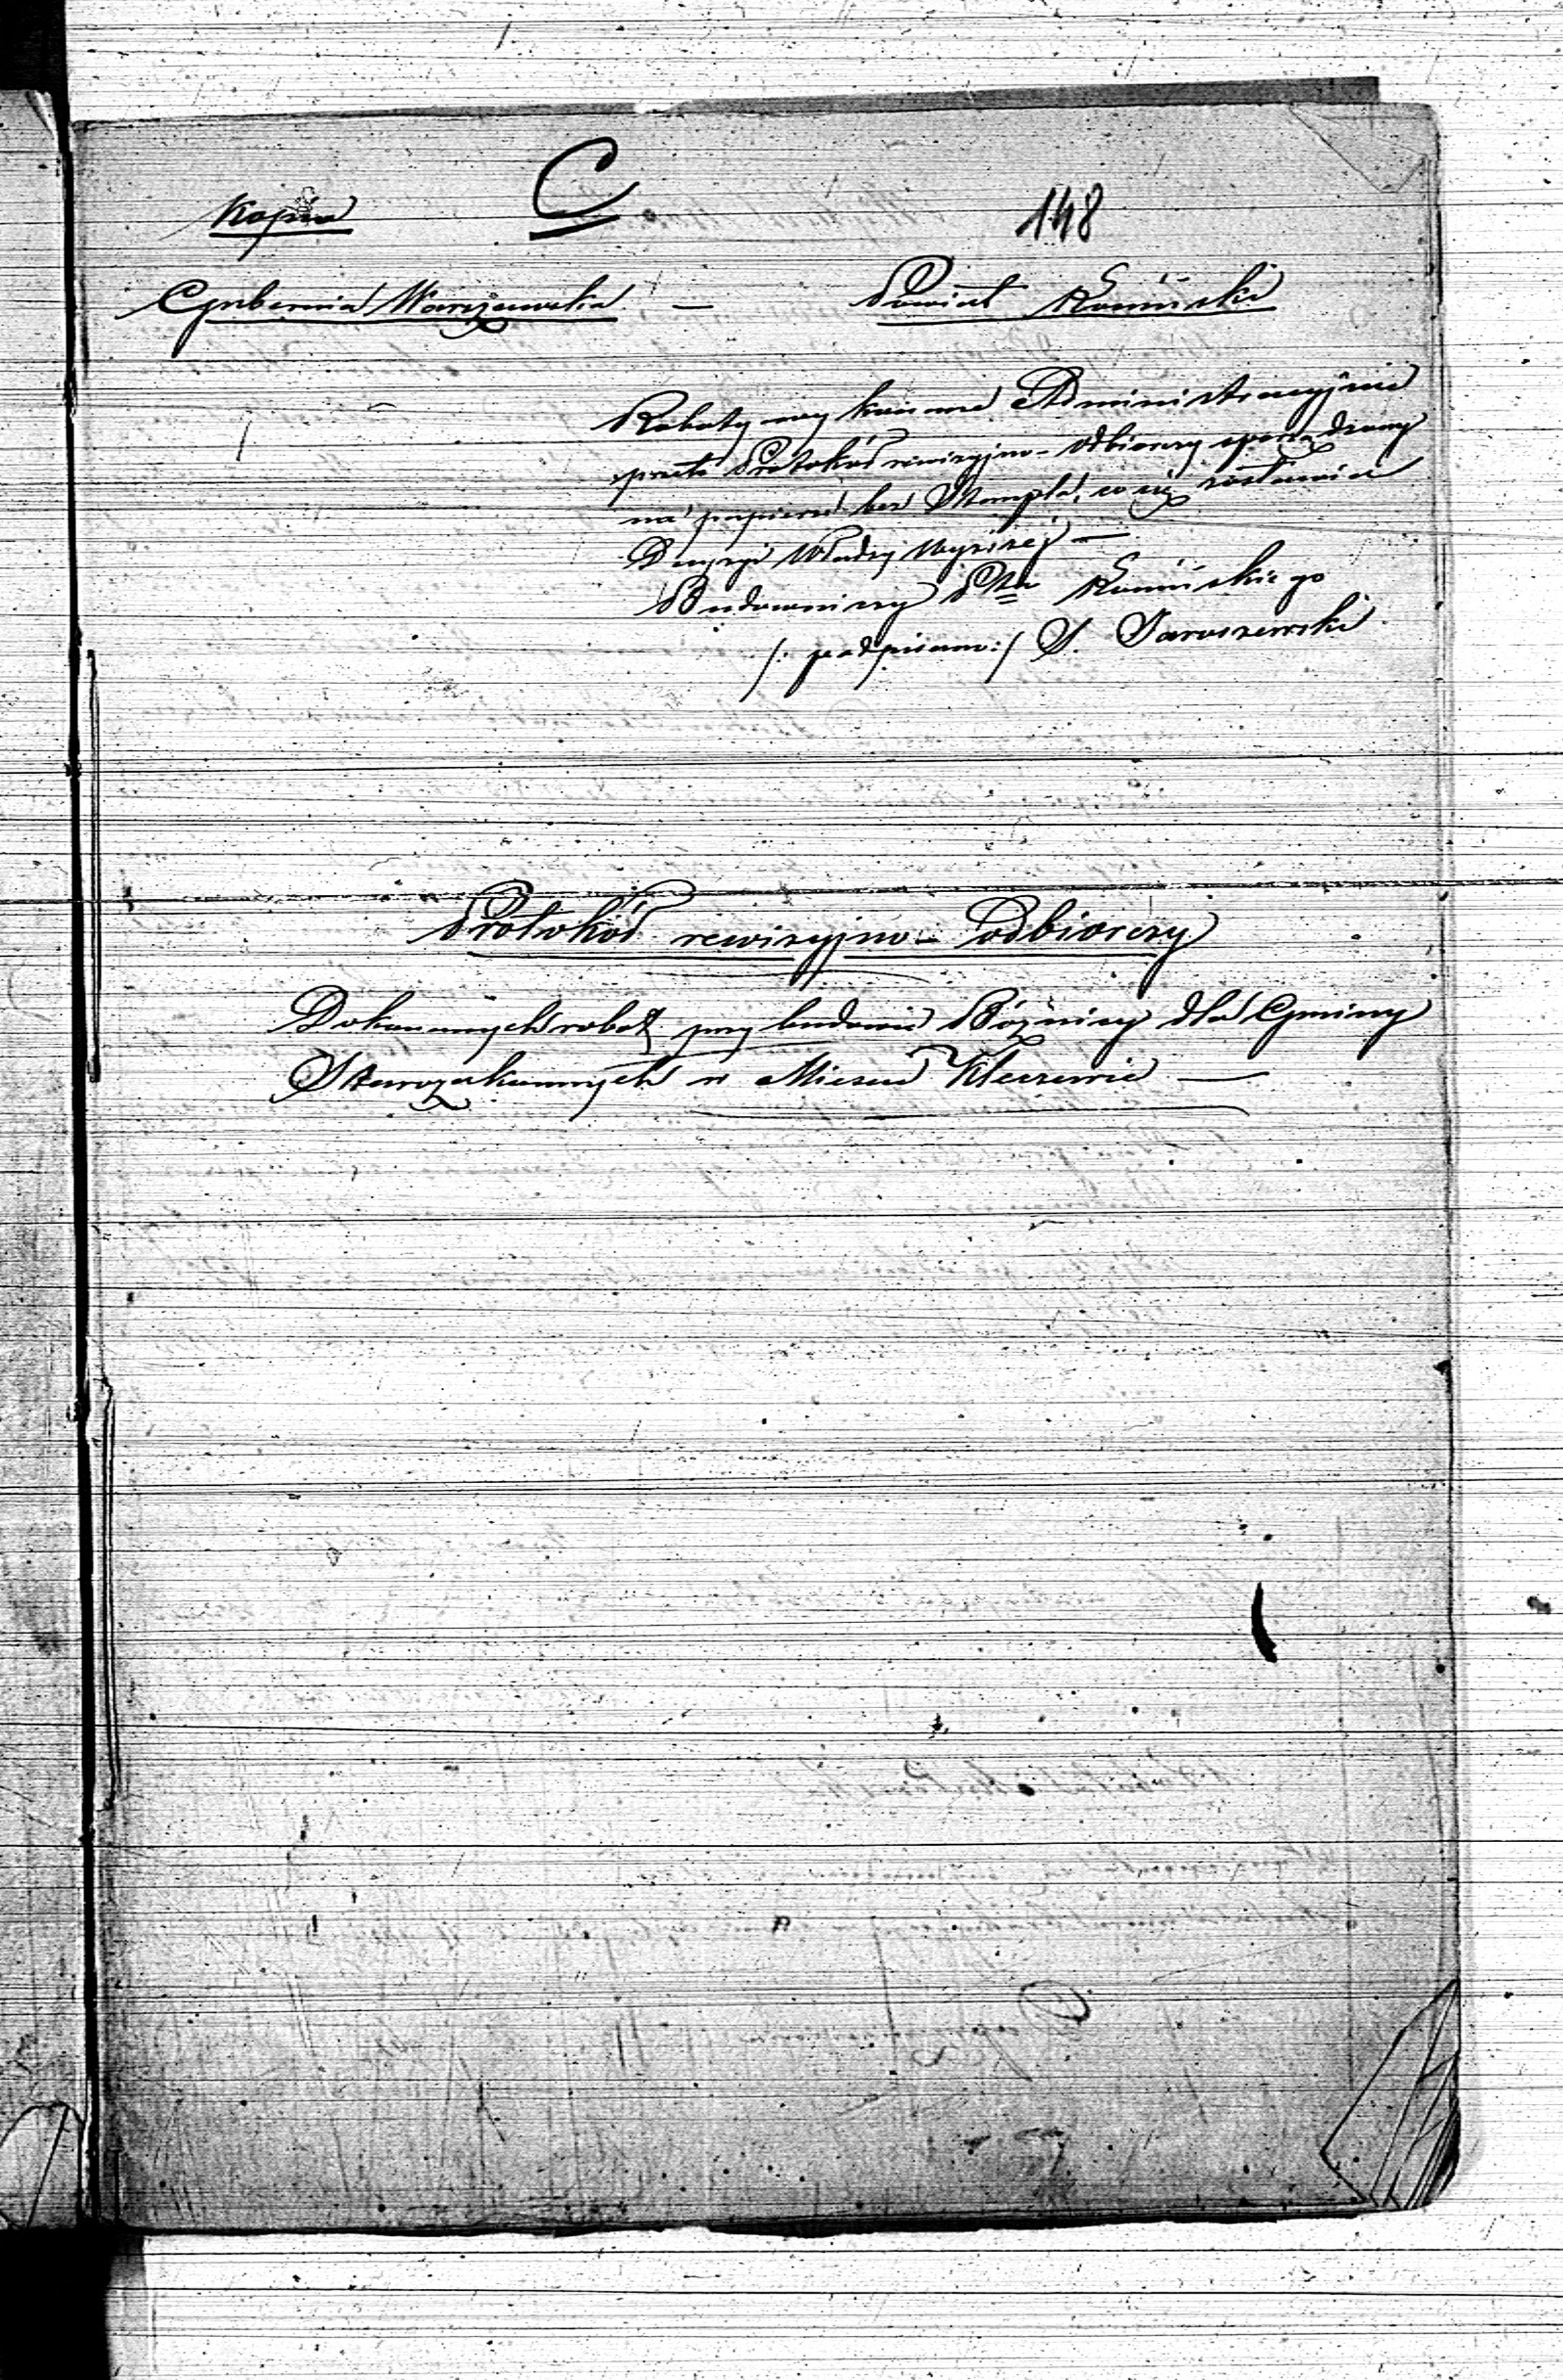 Kopia
C
148
Gubernia Warszawska — Powiat Koniński
Roboty wykonane Administracyjnie
przeto Protokół rewizyjno-odbiorczy sporządzony
na papierze bez Stempla, co się zostawia
Decyzji Władzy Wyższej —
Budowniczy Ptu Konińskiego
/: podpisano :/ S. Jaroszewski
Protokół rewizyjno-Odbiorczy
Dokonanych robot przy budowie Bóżnicy dla Gminy
Starozakonnych w Mieście Kleczewie —